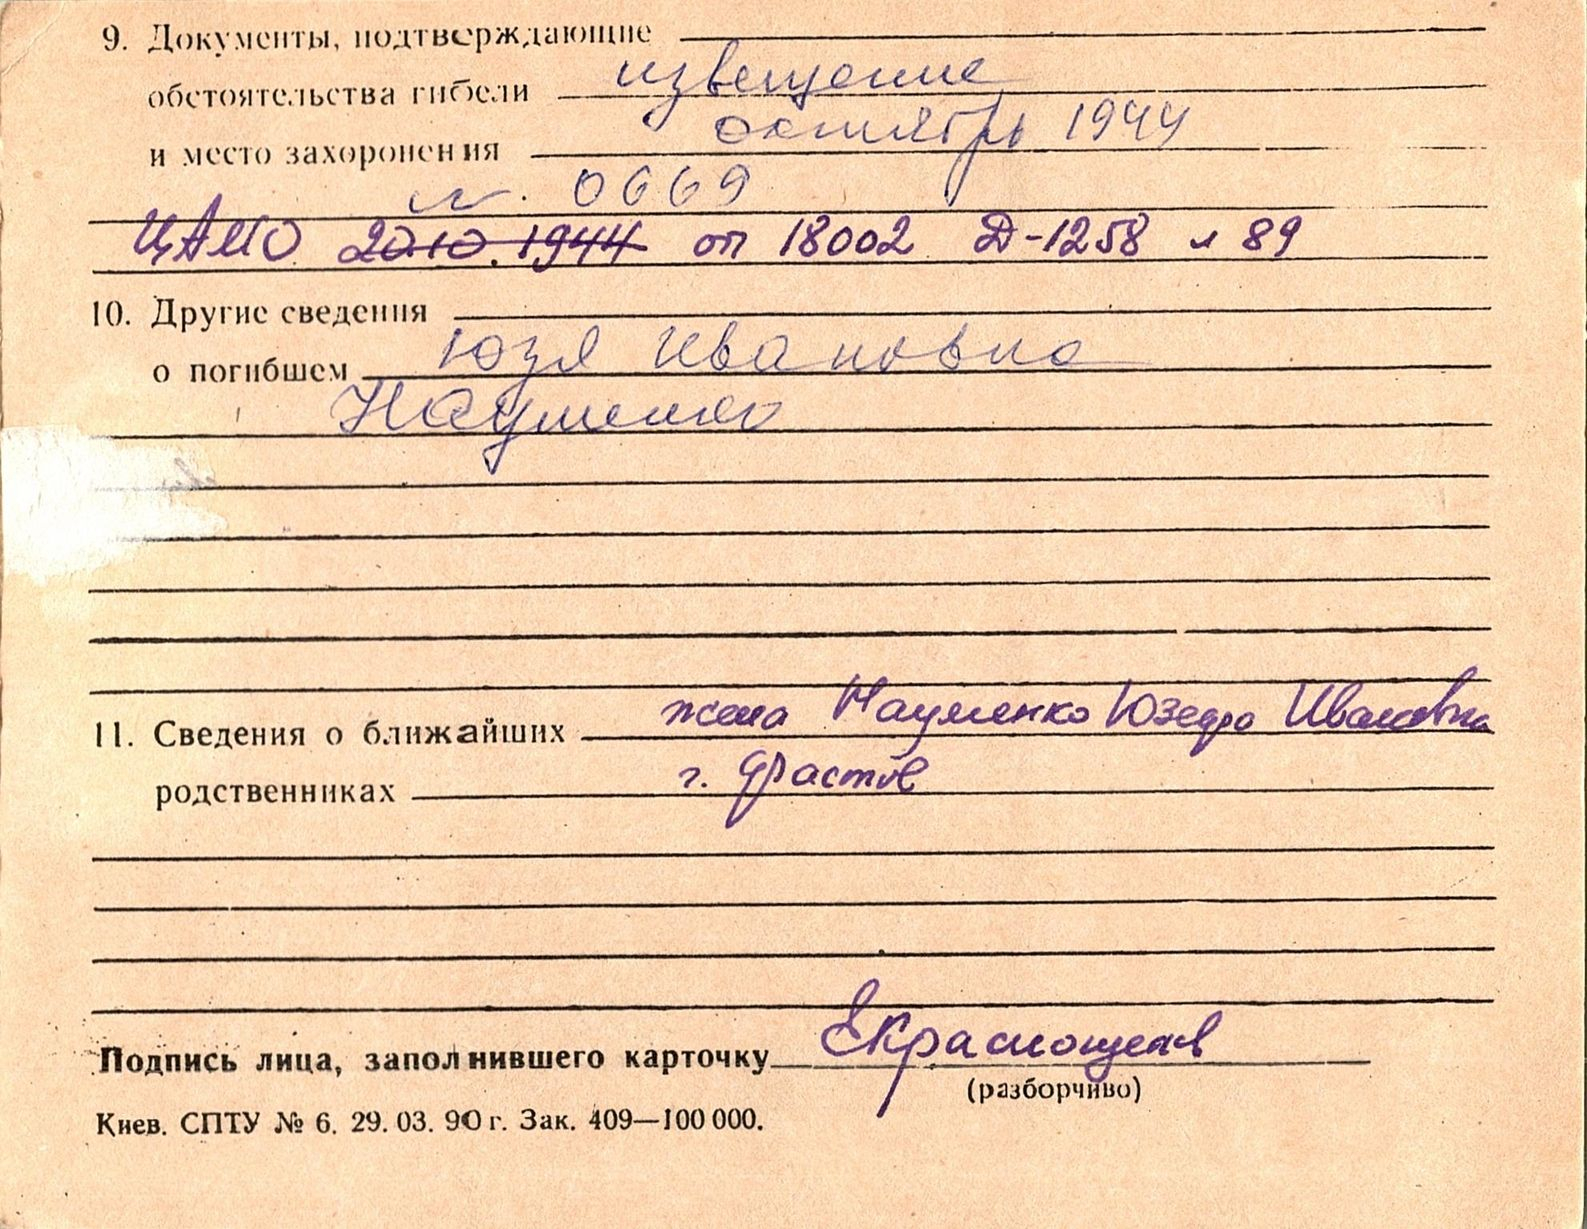 9. Документы, подтверждающие
обстоятельства гибели извещение
октябрь 1944
и место захоронения
N. 0669
ЦАМО 20.10.1944 оп 18002 Д-1258 л 89
10. Другие сведения
о погибшем Юзя Ивановна
Науменко
11. Сведения о ближайших жена Науменко Юзефа Ивановна
родственниках г. Фастов
Подпись лица, заполнившего карточку
(разборчиво)
Киев. СПТУ № 6. 29.03.90 г. Зак. 409—100 000.